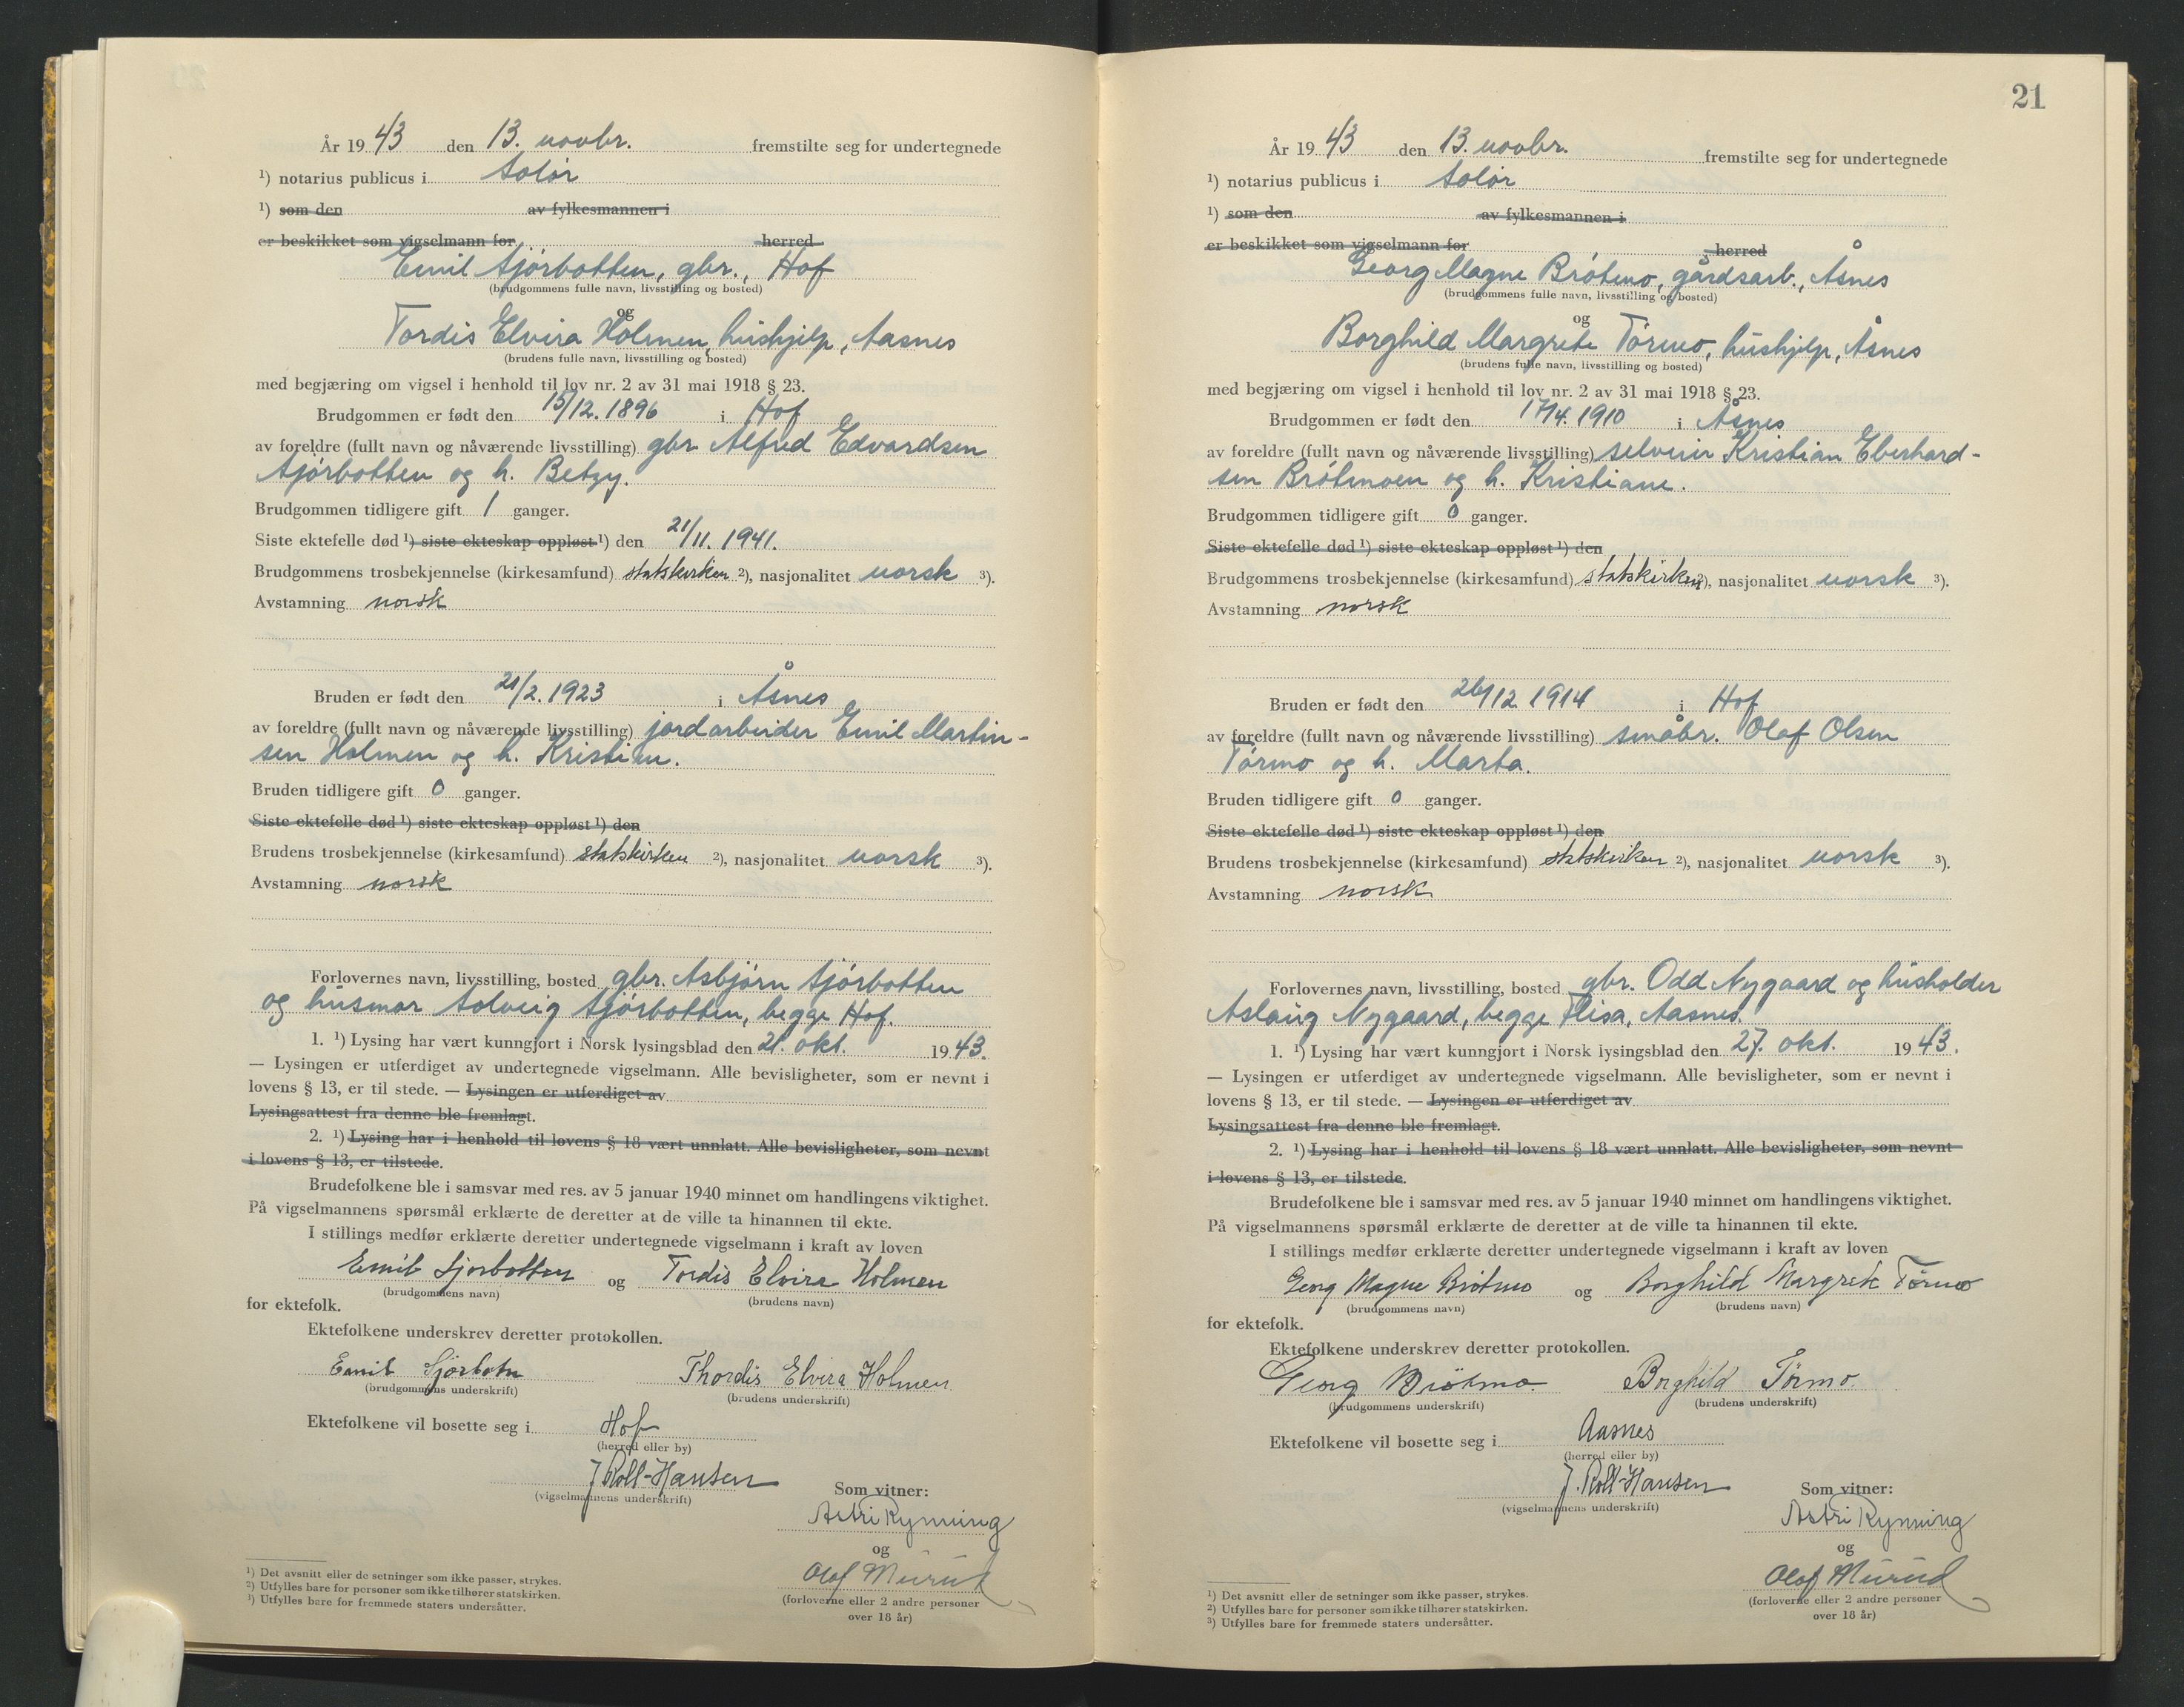 År 1943 den 13. novbr. fremstilte seg for undertegnede
¹) notarius publicus i Solør
¹) som den av fylkesmannen i
er beskikket som vigselmann for herred
Emil Sjörbotten, gbr., Hof
(brudgommens fulle navn, livsstilling og bosted)
og
Tordis Elvira Holmen, hushjelp, Aasnes
(brudens fulle navn, livsstilling og bosted)
med begjæring om vigsel i henhold til lov nr. 2 av 31 mai 1918 § 23.
Brudgommen er født den 15/12. 1896 i Hof
av foreldre (fullt navn og nåværende livsstilling) gbr Alfred Edvardsen
Sjörbotten og h. Betzy.
Brudgommen tidligere gift 1 ganger.
Siste ektefelle død ¹) siste ekteskap oppløst ¹) den 21/11. 1941.
Brudgommens trosbekjennelse (kirkesamfund) statskirken ²), nasjonalitet norsk ³).
Avstamning norsk
Bruden er født den 21/2. 1923 i Åsnes
av foreldre (fullt navn og nåværende livsstilling) jordarbeider Emil Martin-
sen Holmen og h. Kristine.
Bruden tidligere gift 0 ganger.
Siste ektefelle død ¹) siste ekteskap oppløst ¹) den
Brudens trosbekjennelse (kirkesamfund) statskirken ²), nasjonalitet norsk ³).
Avstamning norsk
Forlovernes navn, livsstilling, bosted gbr. Asbjörn Sjörbotten
og husmor Solveig Sjörbotten, begge Hof.
1. ¹) Lysing har vært kunngjort i Norsk lysingsblad den 21. okt. 1943.
— Lysingen er utferdiget av undertegnede vigselmann. Alle bevisligheter, som er nevnt i
lovens § 13, er til stede. — Lysingen er utferdiget av
Lysingsattest fra denne ble fremlagt.
2. ¹) Lysing har i henhold til lovens § 18 vært unnlatt. Alle bevisligheter, som nevnt
i lovens § 13, er tilstede.
Brudefolkene ble i samsvar med res. av 5 januar 1940 minnet om handlingens viktighet.
På vigselmannens spørsmål erklærte de deretter at de ville ta hinannen til ekte.
I stillings medfør erklærte deretter undertegnede vigselmann i kraft av loven
Emil Sjørbotten og Tordis Elvira Holmen
(brudgommens navn) (brudens navn)
for ektefolk.
Ektefolkene underskrev deretter protokollen.
Emil Sjörbotn Thordis Elvira Holmen
(brudgommens underskrift) (brudens underskrift)
Ektefolkene vil bosette seg i Hof
(herred eller by)
J. Roll-Hansen
(vigselmannens underskrift)
Som vitner:
Astri Rynning
og
Olof Murud
(forloverne eller 2 andre personer
over 18 år)
¹) Det avsnitt eller de setninger som ikke passer, strykes.
²) Utfylles bare for personer som ikke tilhører statskirken.
³) Utfylles bare for fremmede staters undersåtter.
21
År 1943 den 13. novbr. fremstilte seg for undertegnede
¹) notarius publicus i Solør
¹) som den av fylkesmannen i
er beskikket som vigselmann for herred
Georg Magne Brötmo, gårdsarb., Åsnes
(brudgommens fulle navn, livsstilling og bosted)
og
Borghild Margrete Törmo, hushjelp, Åsnes
(brudens fulle navn, livsstilling og bosted)
med begjæring om vigsel i henhold til lov nr. 2 av 31 mai 1918 § 23.
Brudgommen er født den 17/4. 1910 i Åsnes
av foreldre (fullt navn og nåværende livsstilling) selveier Kristian Eberhard-
sen Brötmoen og h. Kristiane.
Brudgommen tidligere gift 0 ganger.
Siste ektefelle død ¹) siste ekteskap oppløst ¹) den
Brudgommens trosbekjennelse (kirkesamfund) statskirken ²), nasjonalitet norsk ³).
Avstamning norsk
Bruden er født den 26/12. 1914 i Hof
av foreldre (fullt navn og nåværende livsstilling) småbr. Olaf Olsen
Törmo og h. Marta.
Bruden tidligere gift 0 ganger.
Siste ektefelle død ¹) siste ekteskap oppløst ¹) den
Brudens trosbekjennelse (kirkesamfund) statskirken ²), nasjonalitet norsk ³).
Avstamning norsk
Forlovernes navn, livsstilling, bosted gbr. Odd Nygaard og husholder
Aslaug Nygaard, begge Flisa, Aasnes.
1. ¹) Lysing har vært kunngjort i Norsk lysingsblad den 27. okt. 1943.
— Lysingen er utferdiget av undertegnede vigselmann. Alle bevisligheter, som er nevnt i
lovens § 13, er til stede. — Lysingen er utferdiget av
Lysingsattest fra denne ble fremlagt.
2. ¹) Lysing har i henhold til lovens § 18 vært unnlatt. Alle bevisligheter, som nevnt
i lovens § 13, er tilstede.
Brudefolkene ble i samsvar med res. av 5 januar 1940 minnet om handlingens viktighet.
På vigselmannens spørsmål erklærte de deretter at de ville ta hinannen til ekte.
I stillings medfør erklærte deretter undertegnede vigselmann i kraft av loven
Georg Magne Brøtmo og Borghild Margrete Tørmo
(brudgommens navn) (brudens navn)
for ektefolk.
Ektefolkene underskrev deretter protokollen.
Georg Brötmo. Borghild Tørmo.
(brudgommens underskrift) (brudens underskrift)
Ektefolkene vil bosette seg i Aasnes
(herred eller by)
J. Roll-Hansen
(vigselmannens underskrift)
Som vitner:
Astri Rynning
og
Olof Murud
(forloverne eller 2 andre personer
over 18 år)
¹) Det avsnitt eller de setninger som ikke passer, strykes.
²) Utfylles bare for personer som ikke tilhører statskirken.
³) Utfylles bare for fremmede staters undersåtter.